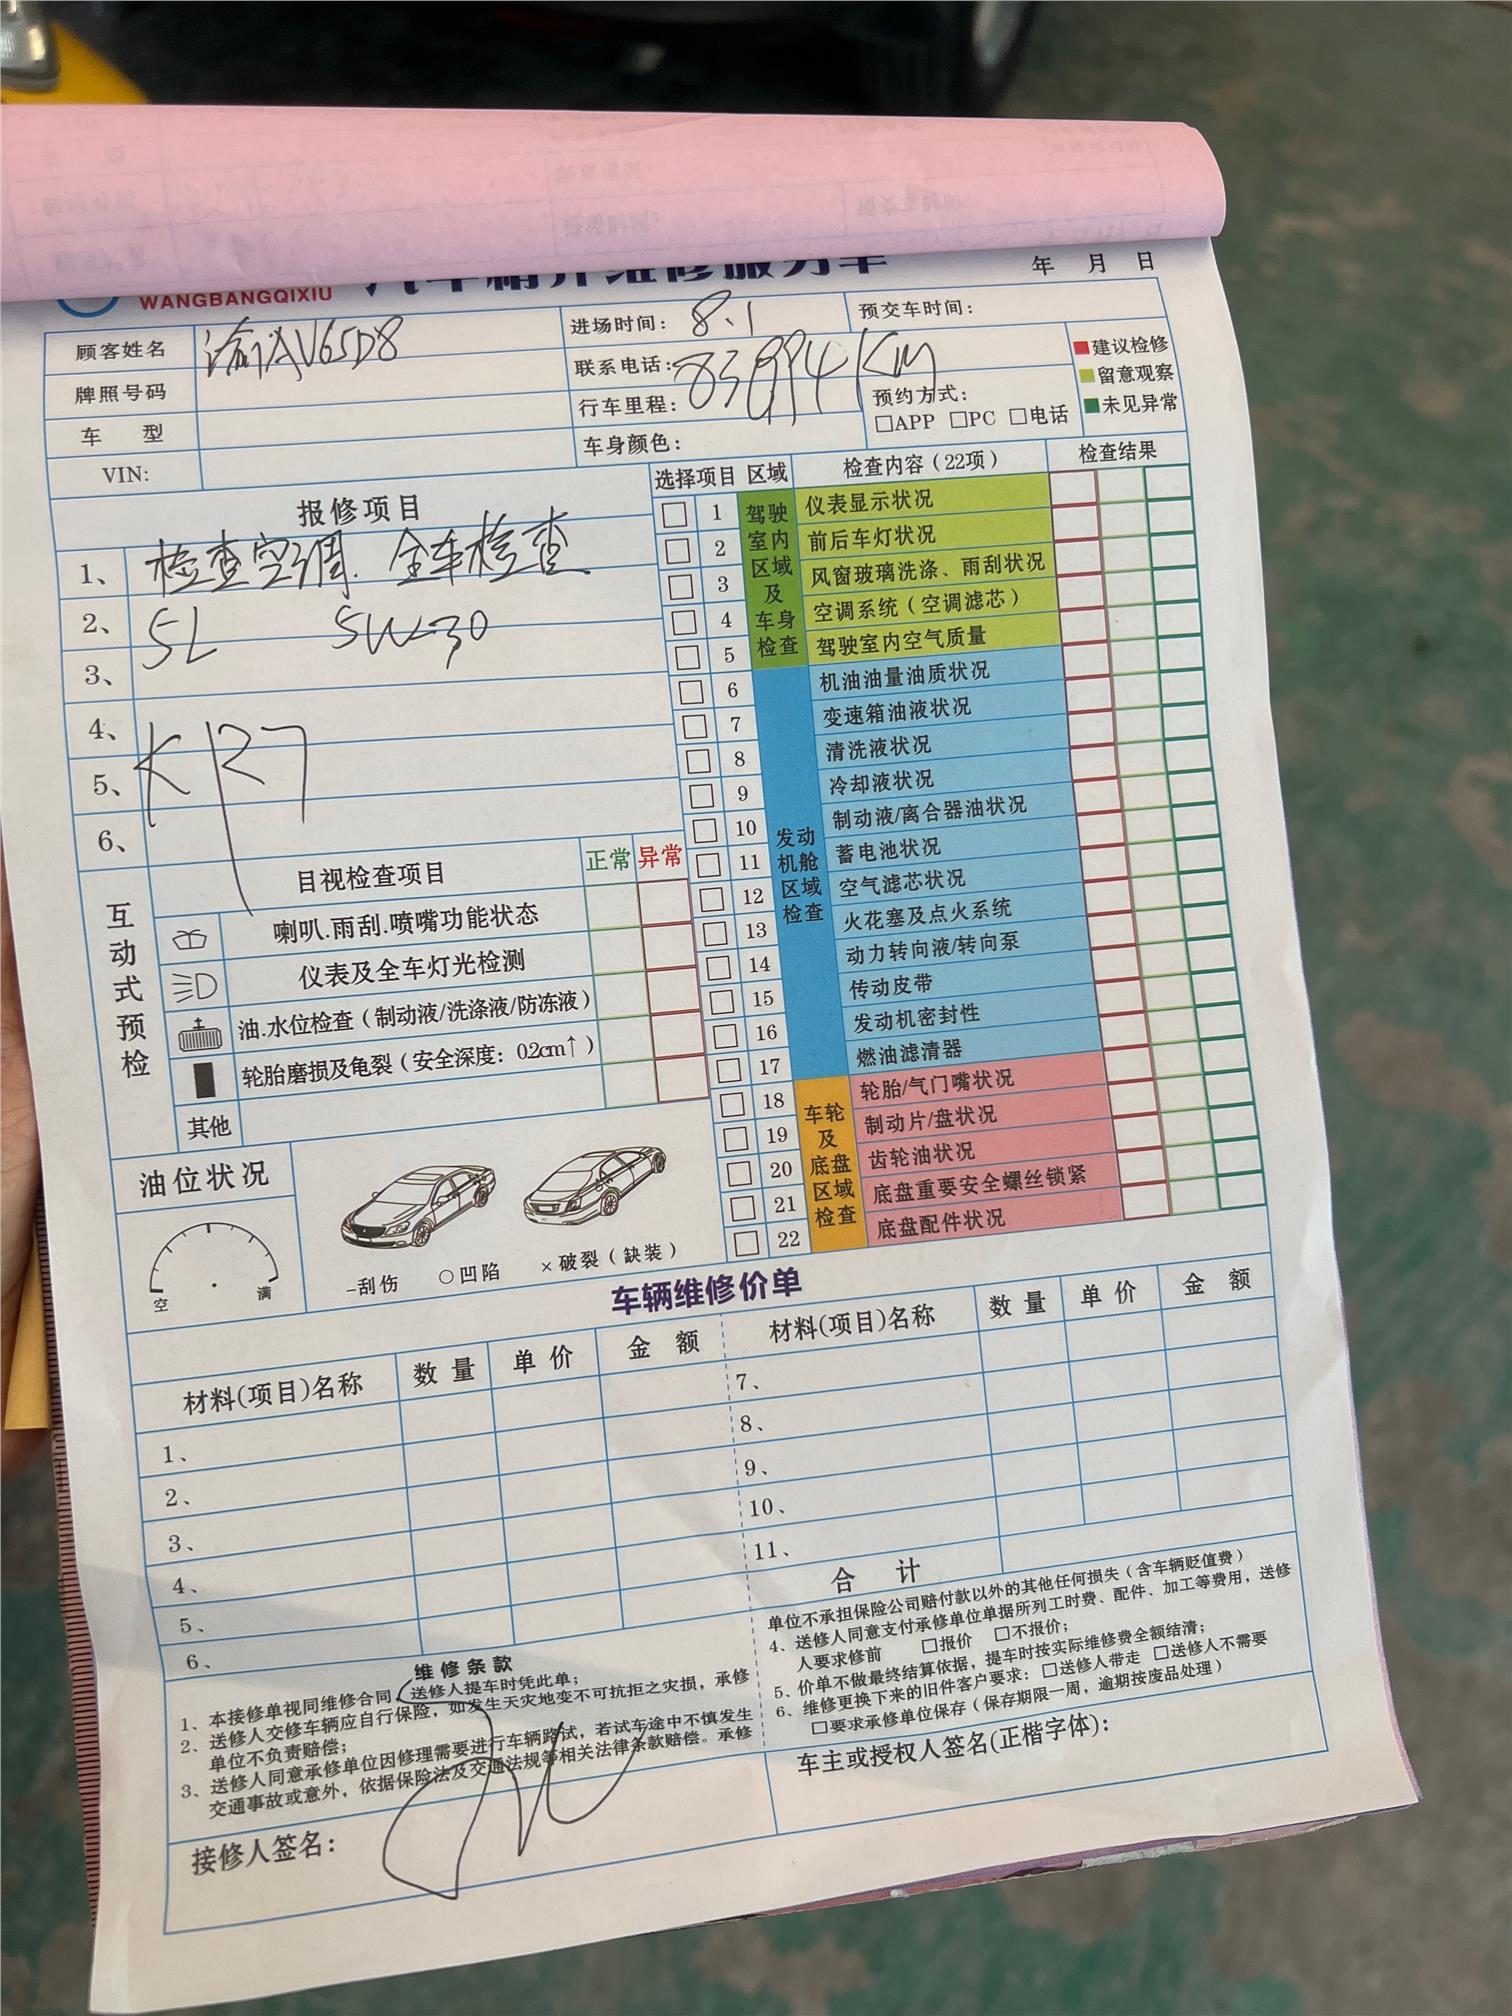 年 月 日
WANGBANGQIXIU
顾客姓名
进场时间: 8.1
预交车时间:
牌照号码
联系电话:
83994KM
车 型
行车里程:
预约方式:
□APP □PC □电话
VIN:
车身颜色:
建议检修
留意观察
未见异常
报修项目
1、 检查空调. 全车检查
2、 5L 5W-30
3、
4、
5、 KR7
6、
选择项目 区域 检查内容(22项) 检查结果
驾驶室内区域及车身检查
1 仪表显示状况
2 前后车灯状况
3 风窗玻璃洗涤、雨刮状况
4 空调系统(空调滤芯)
5 驾驶室内空气质量
发动机舱区域检查
6 机油油量油质状况
7 变速箱油液状况
8 清洗液状况
9 冷却液状况
10 制动液/离合器油状况
11 蓄电池状况
12 空气滤芯状况
13 火花塞及点火系统
14 动力转向液/转向泵
15 传动皮带
16 发动机密封性
17 燃油滤清器
车轮及底盘区域检查
18 轮胎/气门嘴状况
19 制动片/盘状况
20 齿轮油状况
21 底盘重要安全螺丝锁紧
22 底盘配件状况
互动式预检
目视检查项目 正常 异常
喇叭.雨刮.喷嘴功能状态
仪表及全车灯光检测
油.水位检查(制动液/洗涤液/防冻液)
轮胎磨损及龟裂(安全深度: 02cm↑)
其他
油位状况
空 满
-刮伤 ○凹陷 ×破裂(缺装)
车辆维修价单
材料(项目)名称 数量 单价 金额
材料(项目)名称 数量 单价 金额
1、
2、
3、
4、
5、
6、
7、
8、
9、
10、
11、
合 计
维修条款
1、本接修单视同维修合同,送修人提车时凭此单;
2、送修人交修车辆应自行保险,如发生天灾地变不可抗拒之灾损,承修
单位不负责赔偿;
3、送修人同意承修单位因修理需要进行车辆路试,若试车途中不慎发生
交通事故或意外,依据保险法及交通法规等相关法律条款赔偿。承修
单位不承担保险公司赔付款以外的其他任何损失(含车辆贬值费)
4、送修人同意支付承修单位单据所列工时费、配件、加工等费用,送修
人要求修前 □报价 □不报价;
5、价单不做最终结算依据,提车时按实际维修费全额结清;
6、维修更换下来的旧件客户要求:□送修人带走 □送修人不需要
□要求承修单位保存(保存期限一周,逾期按废品处理)
接修人签名:
车主或授权人签名(正楷字体):